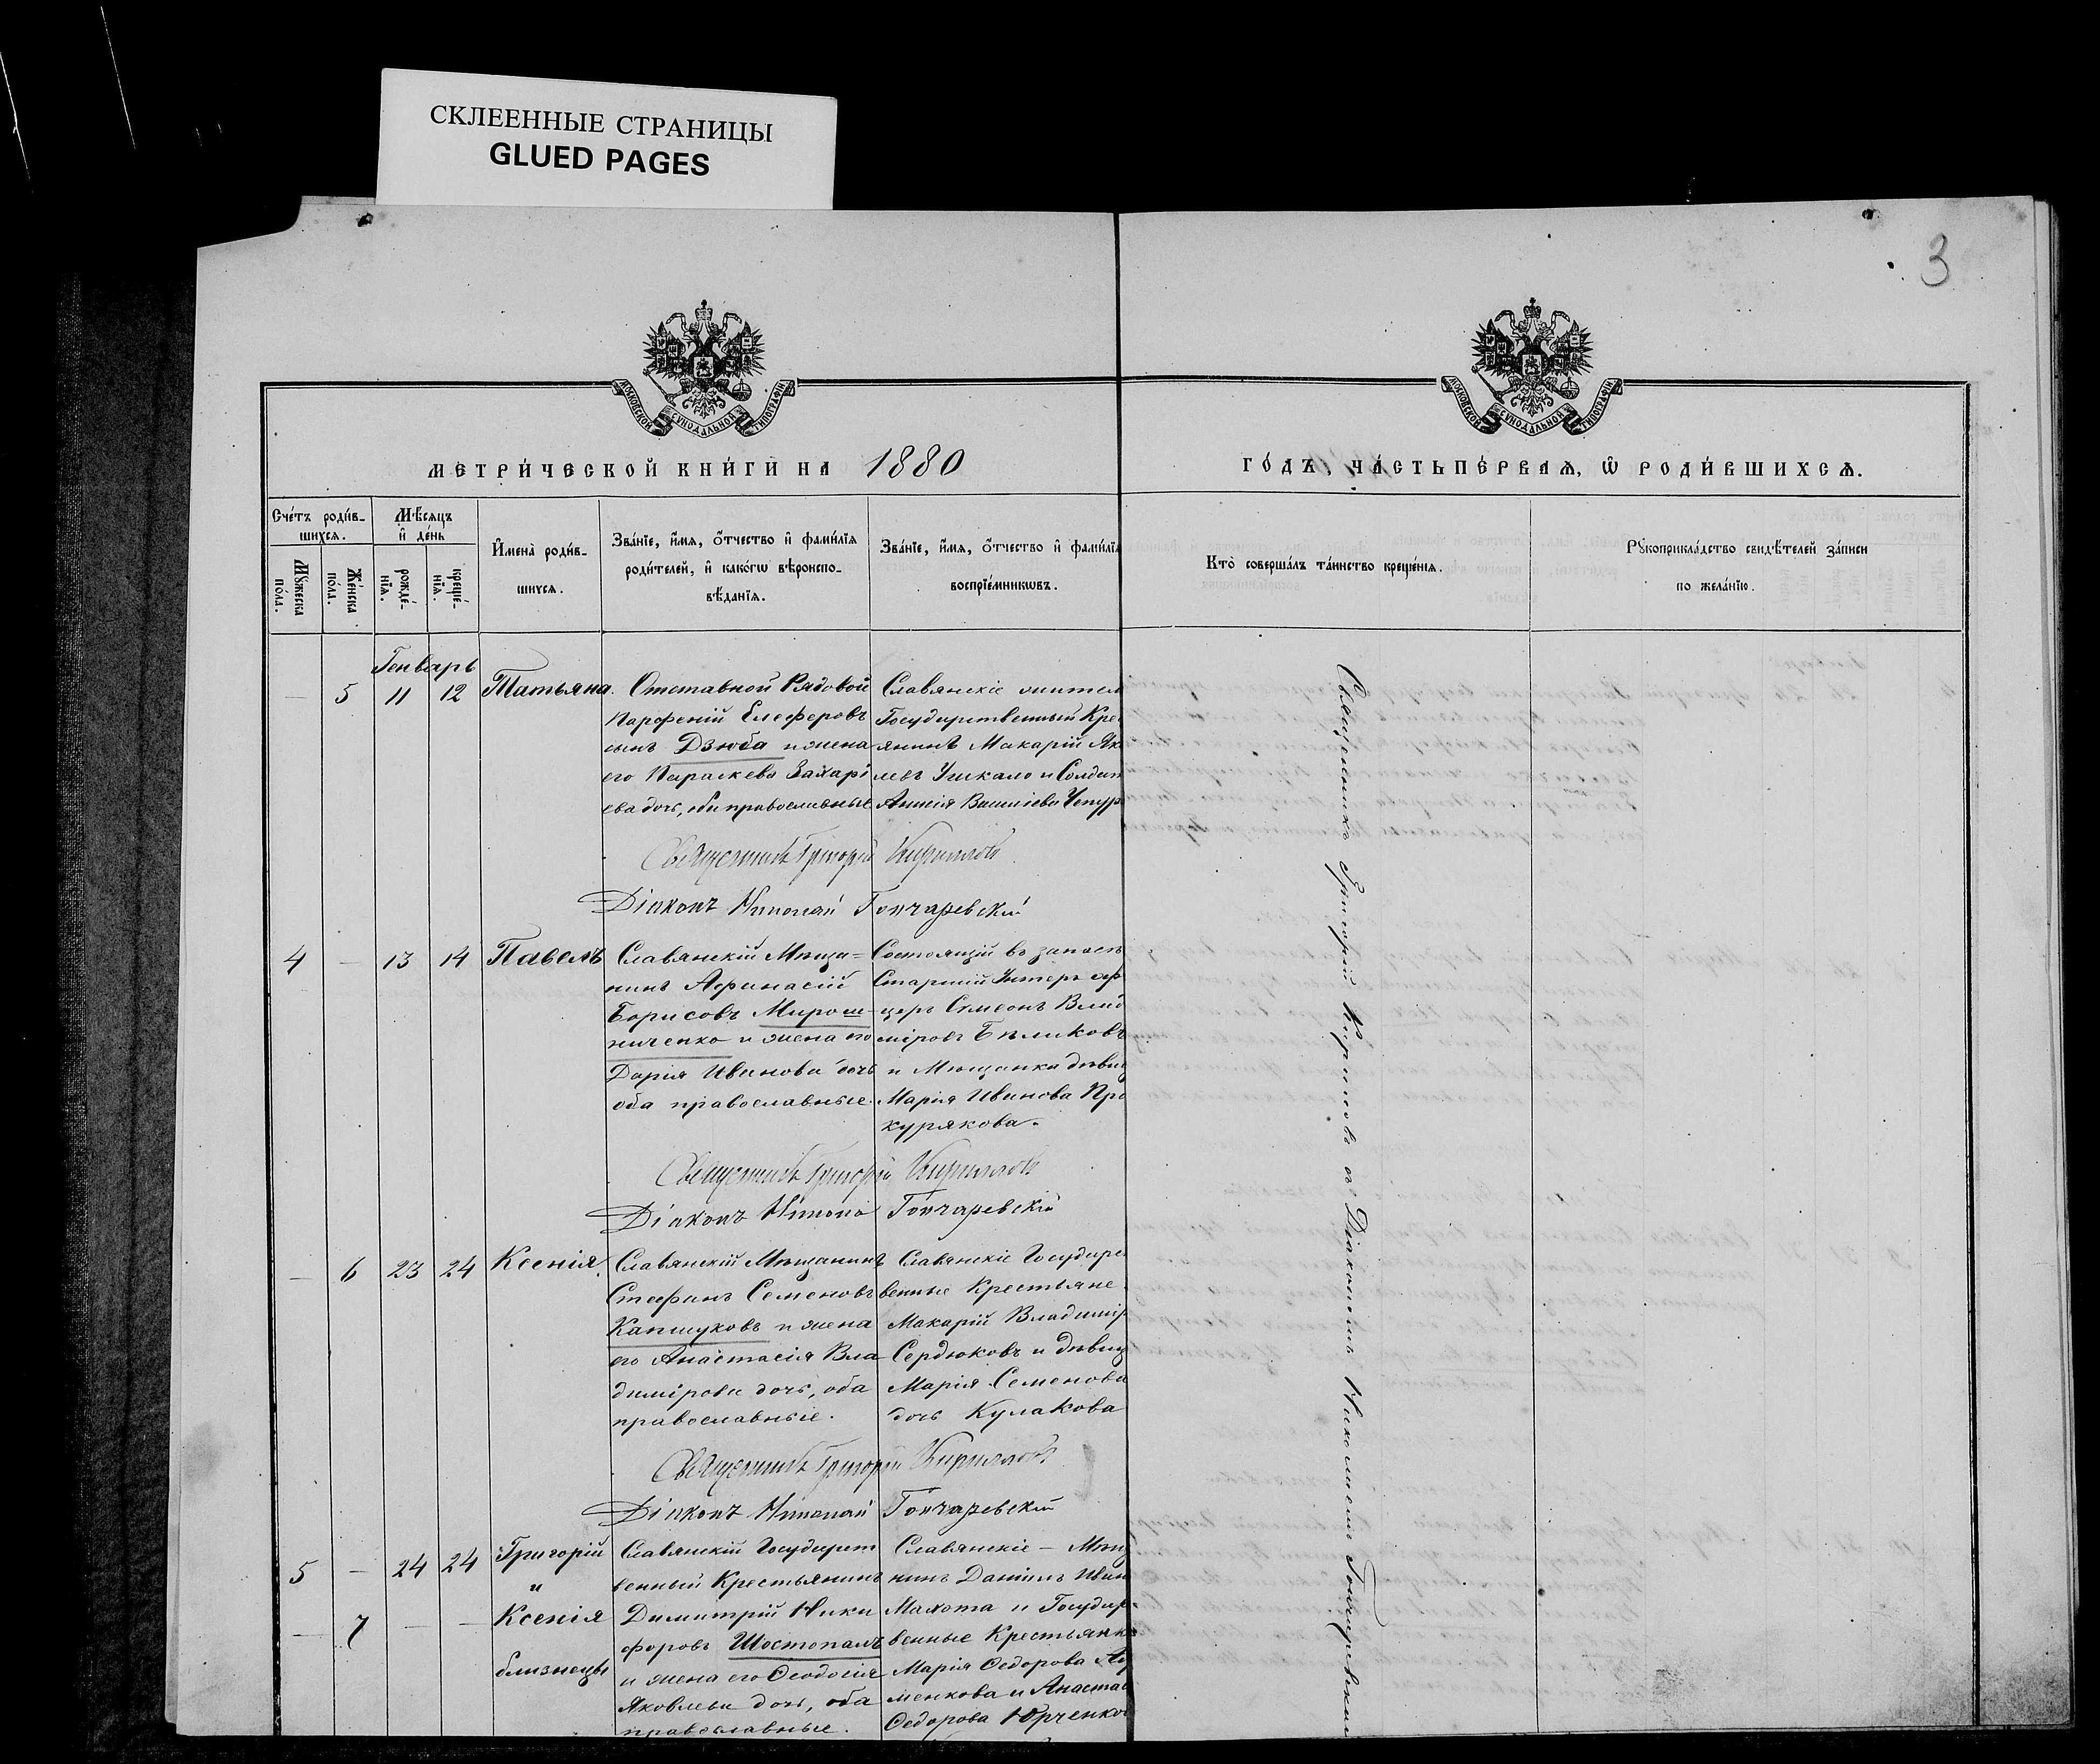 СКЛЕЕННЫЕ СТРАНИЦЫ
GLUED PAGES
3
МОСКОВСКОЙ СѴНОДАЛЬНОЙ ТИПОГРАФІИ
МОСКОВСКОЙ СѴНОДАЛЬНОЙ ТИПОГРАФІИ
МЕТРИ́ЧЕСКОЙ КНИ́ГИ НА 1880
ГО́ДЪ, ЧА́СТЬ ПЕ́РВАѦ, Ѽ РОДИ́ВШИХСѦ.
Сче́тъ роди́в-
шихсѧ.
Мꙋ́жеска по́ла.
Же́нска по́ла.
Мѣ́сѧцъ
и҆ де́нь
рожде́-
нїѧ.
креще́-
нїѧ.
И҆мена̀ роди́в-
шихсѧ.
Зва́нїе, и҆́мѧ, о҆́тчество и҆ фами́лїѧ
роди́телей, и҆ како́гѡ вѣроиспо-
вѣ́данїѧ.
Зва́нїе, и҆́мѧ, о҆́тчество и҆ фами́лїѧ
воспрїе́мникѡвъ.
Кто̀ соверша́лъ та́инство креще́нїѧ.
Рꙋкоприкла́дство свидѣ́телей за́писи
по жела́нїю.
Генварь
— 5 11 12 Татьяна.
Отставной Рядовой
Парфеній Елеферовъ
сынъ Дзюба и жена
его Параскева Захарі
ева дочь, оба православные
Славянскіе жител
Государственный Кре
янинъ Макарій Як
левъ Ушкало и Солдат
Аннія Василіева Чепур
Священникъ Григорій Кирилловъ
Діаконъ Николай Гончаревскій
4 — 13 14 Павелъ
Славянскій Мѣща=
нинъ Афанасій
Борисовъ Мирош-
ниченко и жена его
Дарія Иванова дочь
оба православные.
Состоящій въ запасѣ
Старшій Унтеръ офи
церъ Симеонъ Влад
міровъ Бѣликовъ
и Мѣщанка дѣвиц
Марія Иванова Про
курякова.
Священникъ Григорій Кирилловъ
Діаконъ Николай Гончаревскій
— 6 23 24 Ксенія.
Славянскій Мѣщанинъ
Стефанъ Семеновъ
Капшуковъ и жена
его Анастасія Вла
димірова дочь, оба
православные.
Славянскіе Государс
венные Крестьяне
Макарій Владимір
Сердюковъ и дѣвиц
Марія Семенова
дочь Кулакова
Священникъ Григорій Кирилловъ
Діаконъ Николай Гончаревскій
5 — 24 24 Григорій
и
— 7 — — Ксенія
близнецы
Славянскій Государст
венный Крестьянинъ
Димитрій Ники
форовъ Шостопалъ
и жена его Ѳеодосія
Яковлева дочь, оба
православные.
Славянскіе — Мѣщ
нинъ Даніилъ Иван
Махота и Государ-
венные Крестьянки
Марія Ѳедорова
менкова и Анастас
Ѳедорова Юрченков
Священникъ Григорій Кирилловъ съ Діакономъ Николаемъ Гончаревскимъ